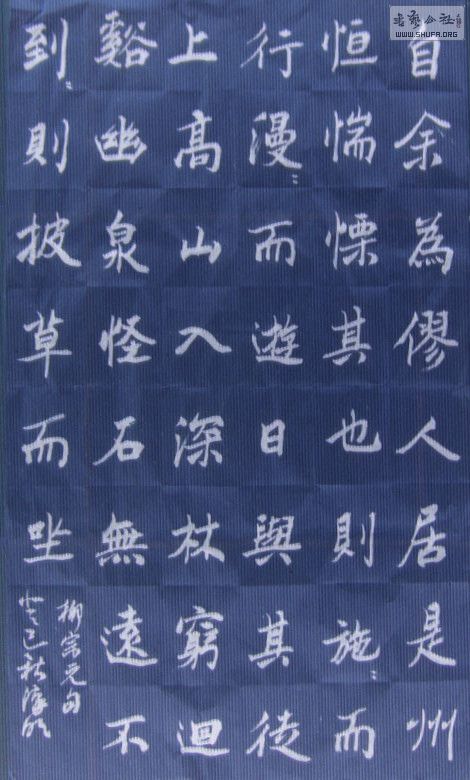 自余為僇人居是州
恒惴慄其也則施〻而
行漫〻而遊日與其徒
上高山入深林窮迴
谿幽泉怪石無遠不
到〻則披草而坐
柳宗元句
癸巳秋
书艺公社
WWW.SHUFA.ORG